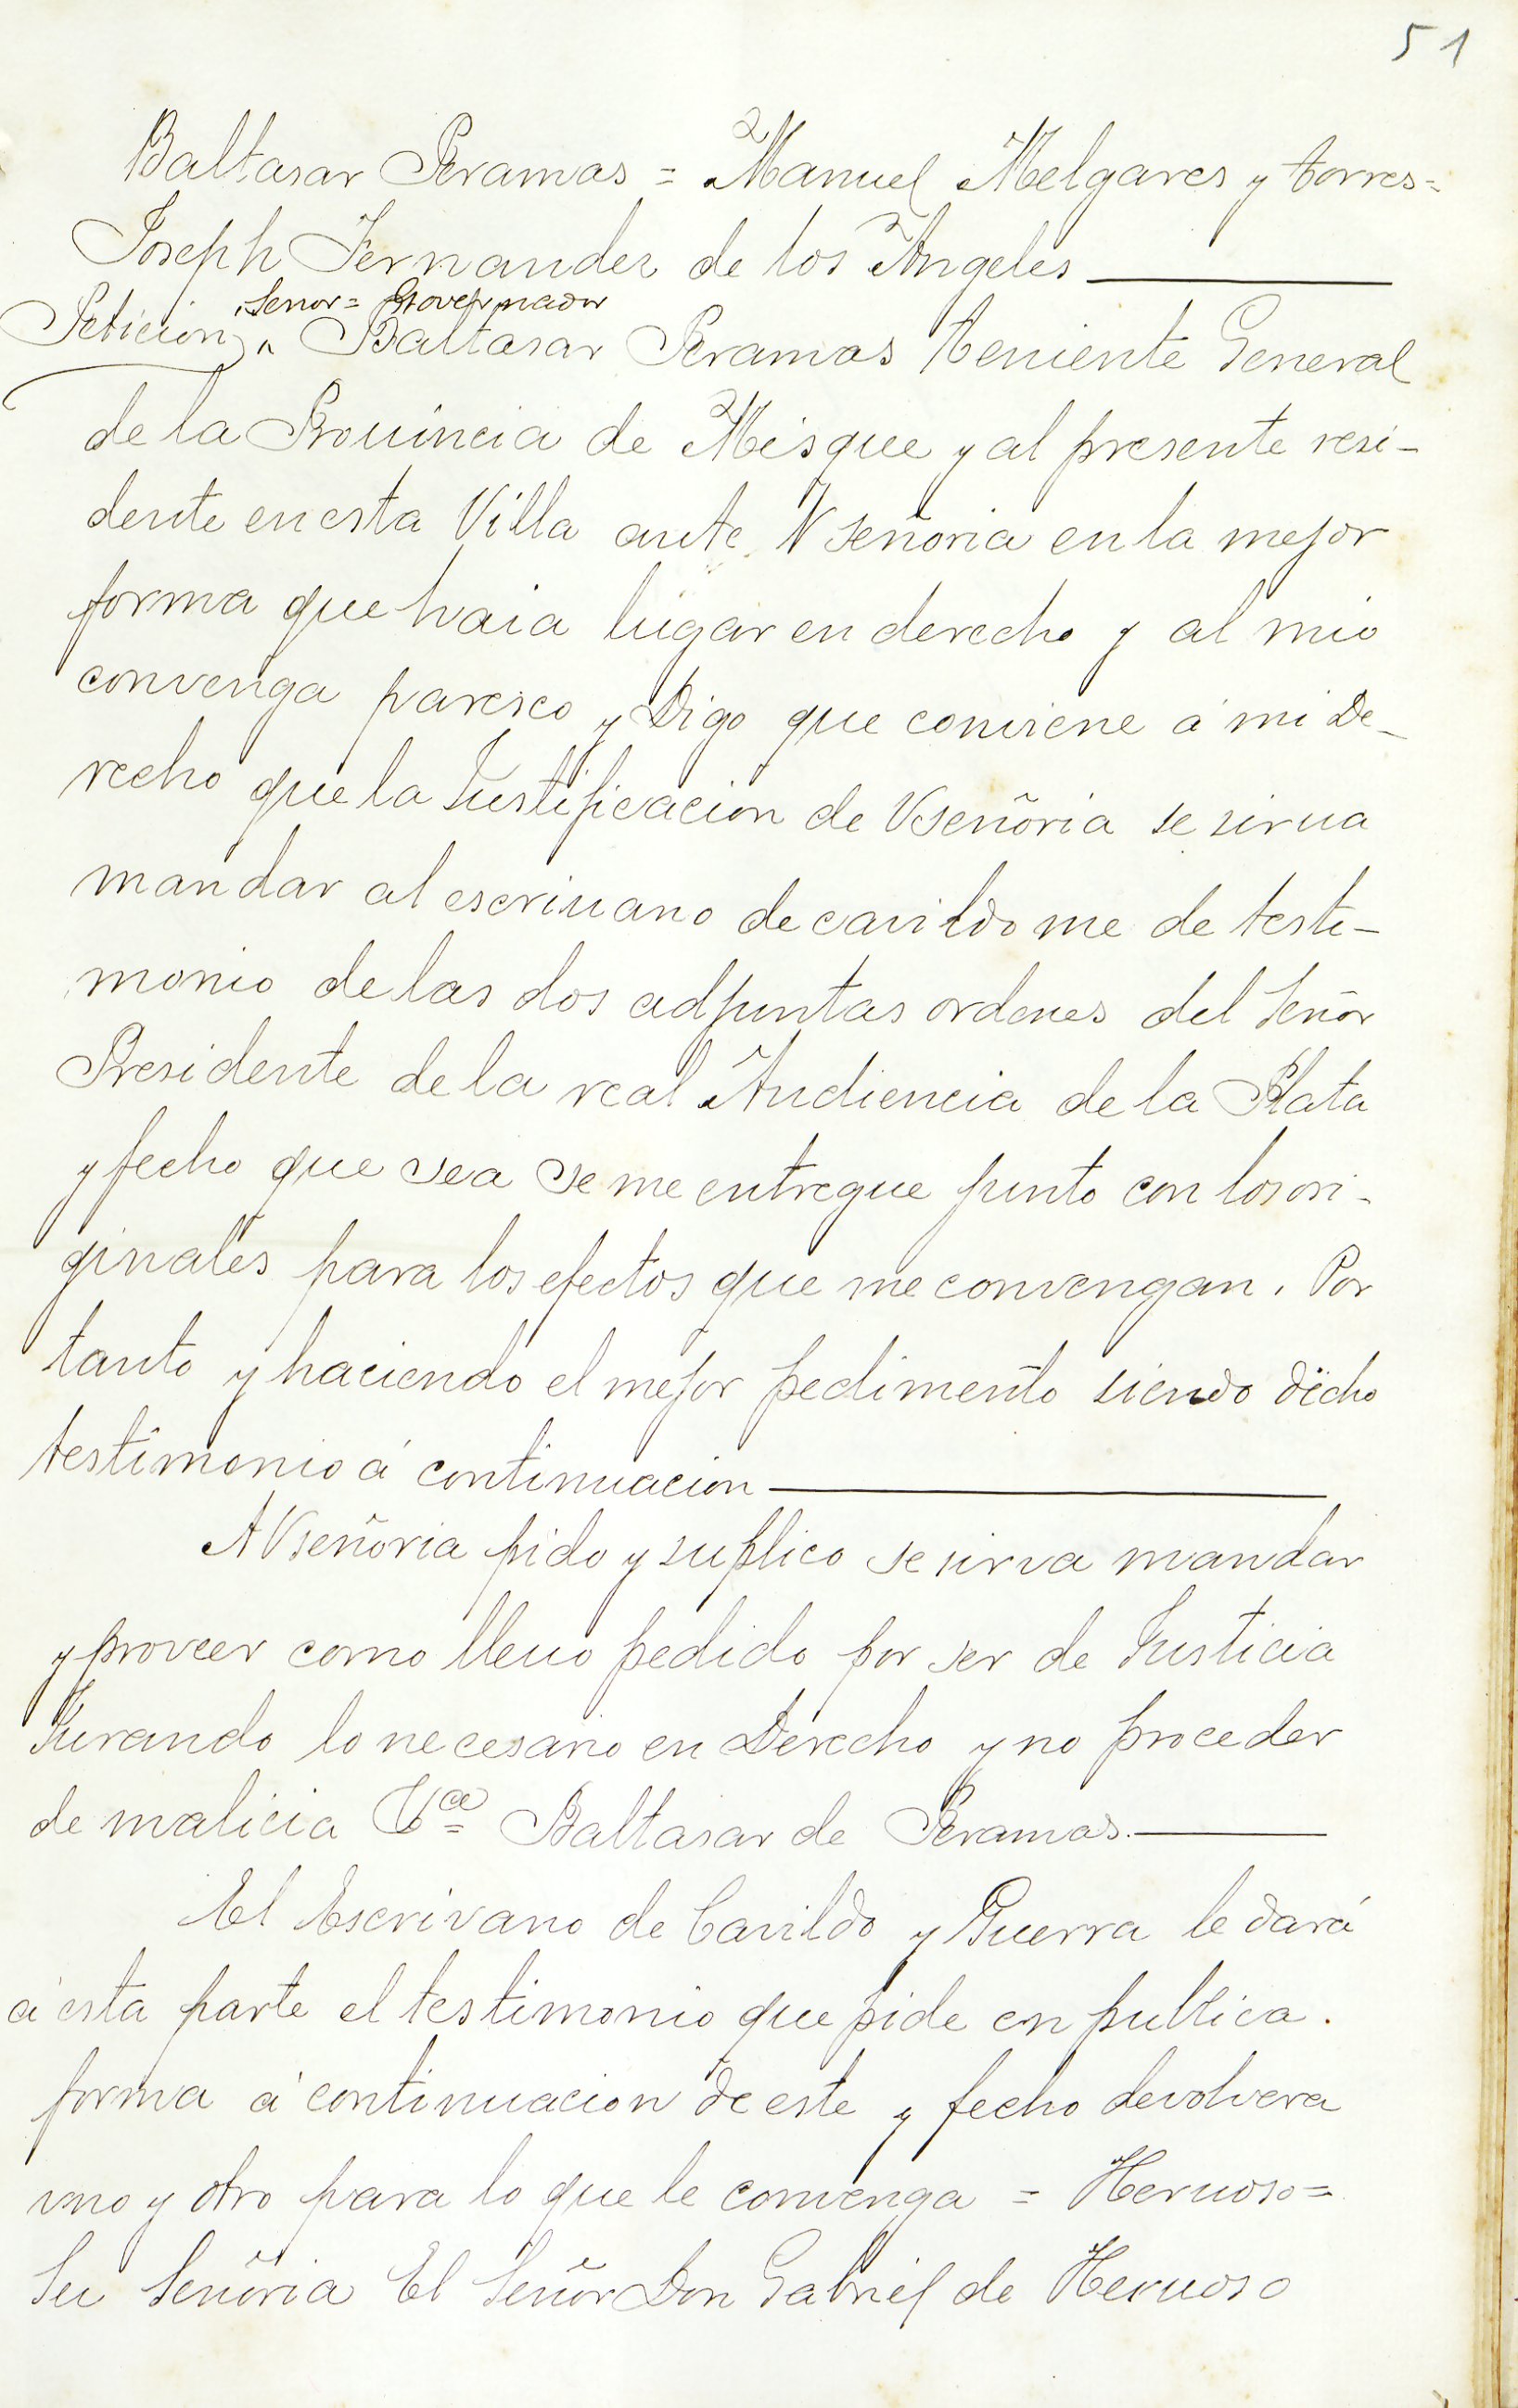 51
Baltasar Peramas = Manuel Melgares y torres=
Joseph Fernandez de los Angeles
Señor= Governador
Peticion Baltasar Peramas theniente General
de la Prouincia de Misque y al presente resi-
dente en esta Villa ante V señoria en la mejor
forma que haia lugar en derecho y al mio
convenga paresco y Digo que conviene á mi De-
recho que la Justificacion de Vseñoria se sirua
mandar al escriuano de cavildo me de testi-
monio de las dos adjuntas ordenes del Señor
Presidente de la real Audiencia de la Plata
y fecho que sea se me entregue junto con los ori-
ginales para los efectos que me convengan. Por
tanto y haciendo el mejor pedimento siendo dicho
testimonio á continuacion
A Vseñoria pido y suplico se sirva mandar
y proveer como lleuo pedido por ser de Justicia
Jurando lo necesario en Derecho y no proceder
de malicia Baltasar de Peramas.
El Escrivano de Cavildo y Guerra le dará
á esta parte el testimonio que pide en publica.
forma á continuacion de este y fecho devolvera
uno y otro para lo que le convenga = Heruoso=
Su Señoria El Señor Don Gabriel de Heruoso